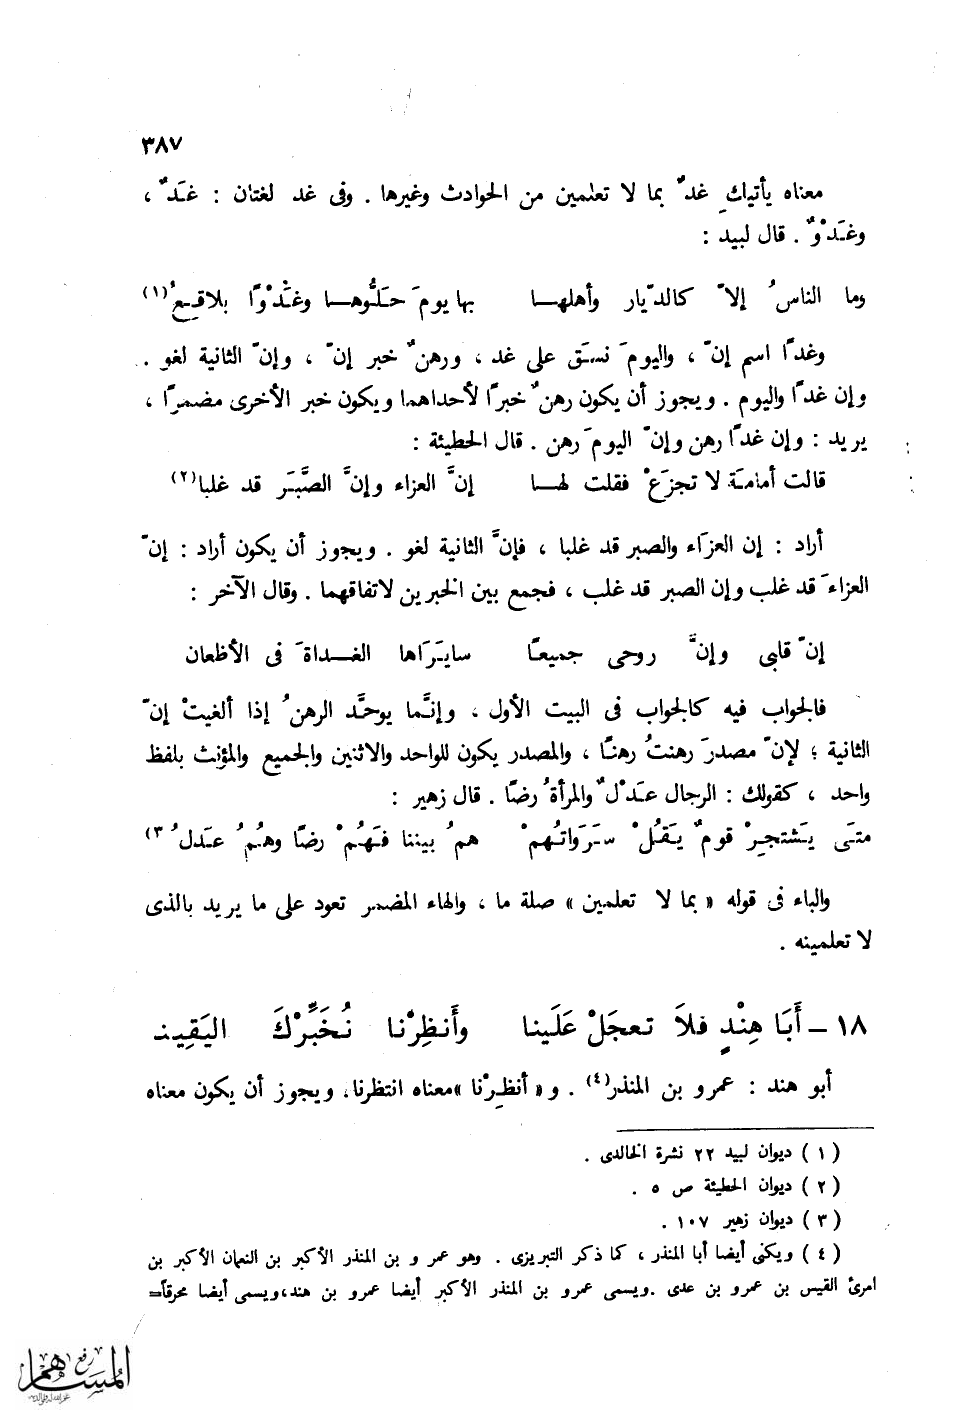 ٣٨٧
معناه يأتيكِ غدٌ بما لا تعلمين من الحوادث وغيرها . وفى غد لغتان : غَدٌ ،
وغَدْوٌ . قال لبيد :
وما الناسُ إلاّ كالدّيار وأهلهـا بها يومَ حَلُّوهـا وغَدْوًا بلاقِعُ(١)
وغدًا اسم إنّ ، واليومَ نسَق على غد ، ورهنٌ خبر إنّ ، وإنّ الثانية لغو .
وإن غدًا واليوم . ويجوز أن يكون رهنٌ خبرًا لأحداهما ويكون خبر الأخرى مضمرًا ،
يريد : وإن غدًا رهن وإنّ اليومَ رهن . قال الحطيئة :
قالت أمامة لا تجزَعْ فقلت لهـا إنَّ العزاء وإنَّ الصَّبَر قد غلبا(٢)
أراد : إن العزاء والصبر قد غلبا ، فإنَّ الثانية لغو . ويجوز أن يكون أراد : إنّ
العزاءَ قد غلب وإن الصبر قد غلب ، فجمع بين الخبرين لاتفاقهما . وقال الآخر :
إنّ قلبى وإنَّ روحى جميعًا سايَرَاها الغـداةَ فى الأظعان
فالجواب فيه كالجواب فى البيت الأول ، وإنَّما يوحَّد الرهنُ إذا ألغيتْ إنّ
الثانية ؛ لإنّ مصدرَ رهنتُ رهنًا ، والمصدر يكون للواحد والاثنين والجميع والمؤنث بلفظ
واحد ، كقولك : الرجال عَدْلٌ والمرأةُ رضًا . قال زهير :
متَى يَشتجِرْ قومٌ يَقُلْ سَرَواتُهمْ همُ بيننا فَهُمْ رضًا وهُمُ عَدلُ ٣)
والباء فى قوله « بما لا تعلمين » صلة ما ، والهاء المضمر تعود على ما يريد بالذى
لا تعلمينه .
١٨ – أَبَا هِنْدٍ فلاَ تعجَلْ عَلَينا وأَنظِرْنا نُخَبِّرْكَ اليَقِينـ
أبو هند : عمرو بن المنذر(٤) . و « أنظِرْنا » معناه انتظرنا، ويجوز أن يكون معناه
( ١ ) ديوان لبيد ٢٢ نشرة الخالدى .
( ٢ ) ديوان الحطيئة ص ٥ .
( ٣ ) ديوان زهير ١٠٧ .
( ٤ ) ويكنى أيضا أبا المنذر ، كما ذكر التبريزى . وهو عمر و بن المنذر الأكبر بن النعمان الأكبر بن
امرئ القيس بن عمرو بن عدى .ويسمى عمرو بن المنذر الأكبر أيضا عمرو بن هند،ويسمى أيضا محرقاً=